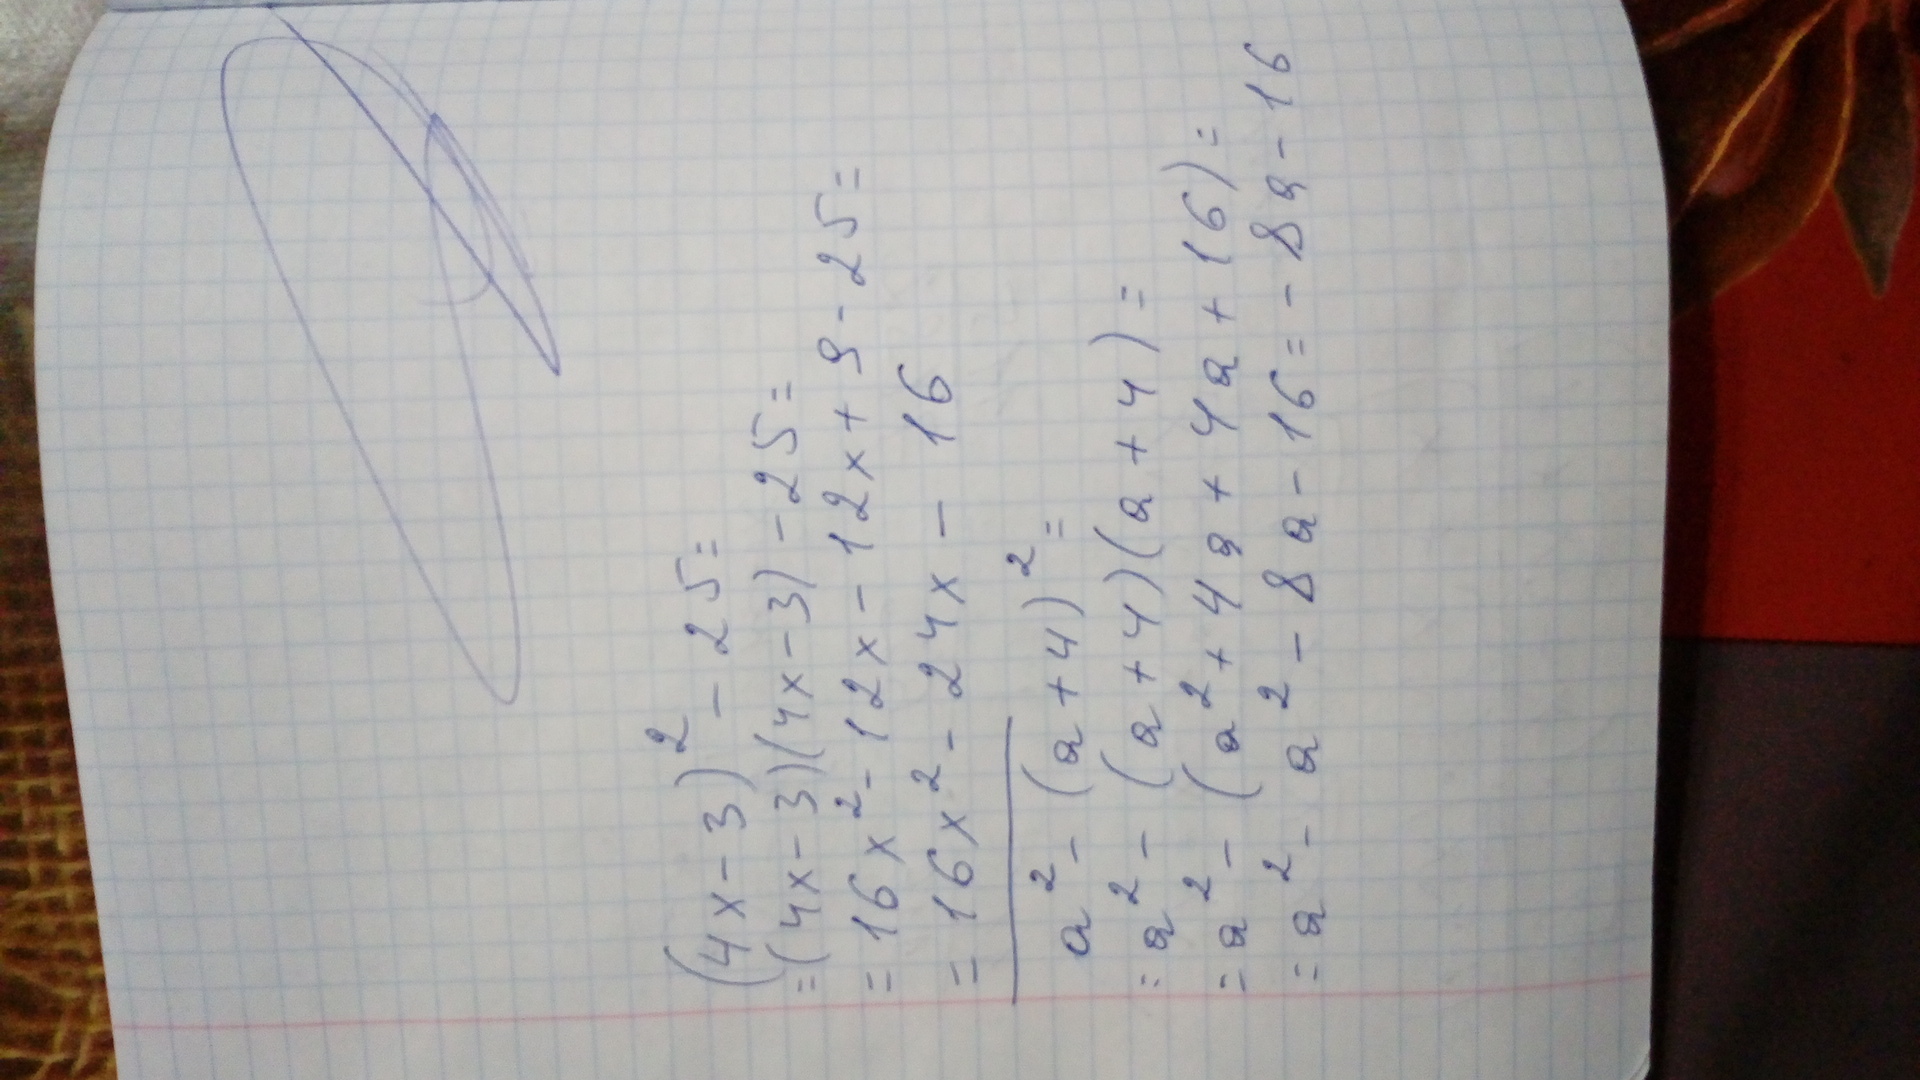 (4x-3)² - 25=
=(4x-3)(4x-3)-25=
=16x²-12x-12x+9-25=
=16x²-24x-16
a²-(a+4)²=
=a²-(a+4)(a+4)=
=a²-(a²+4a+4a+16)=
=a²-a²-8a-16=-8a-16